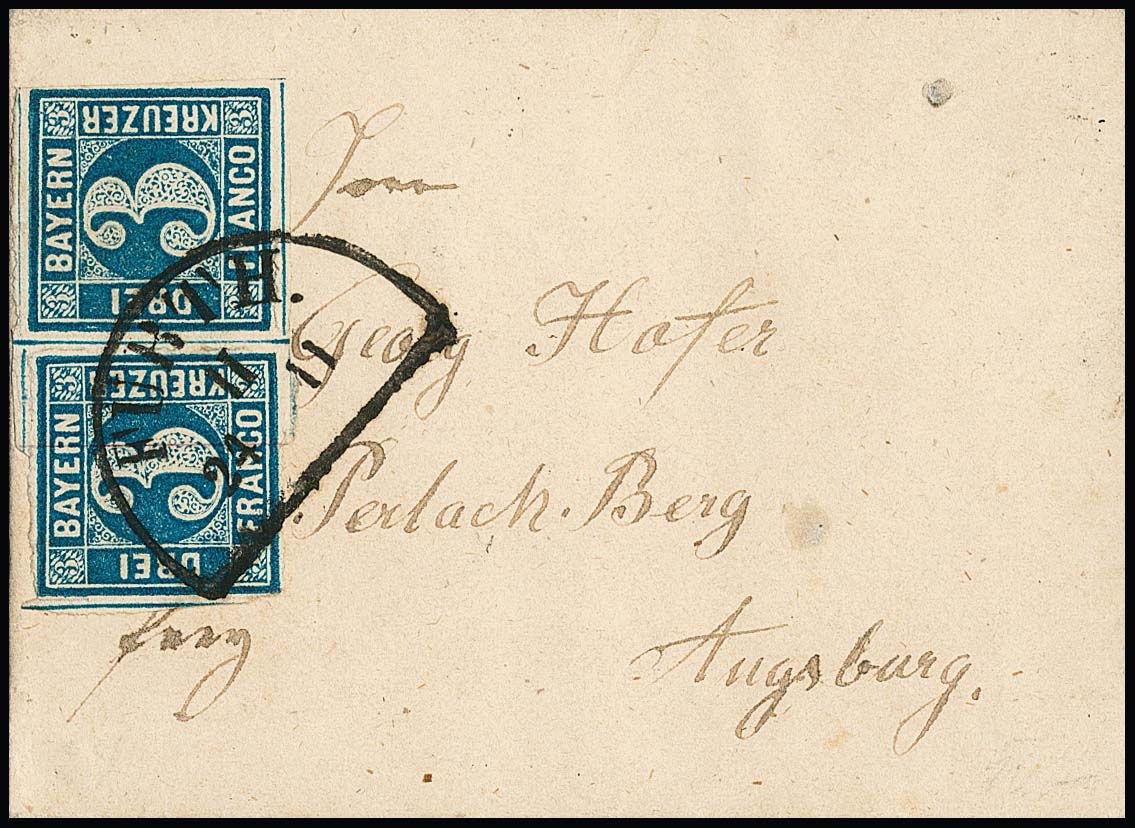 BAYERN
KREUZER
FRANCO
DREI
3
BAYERN
KREUZER
FRANCO
DREI
3
FÜRTH.
11 11
24
Herrn
Georg Hofer
Perlach. Berg
frey
Augsburg.